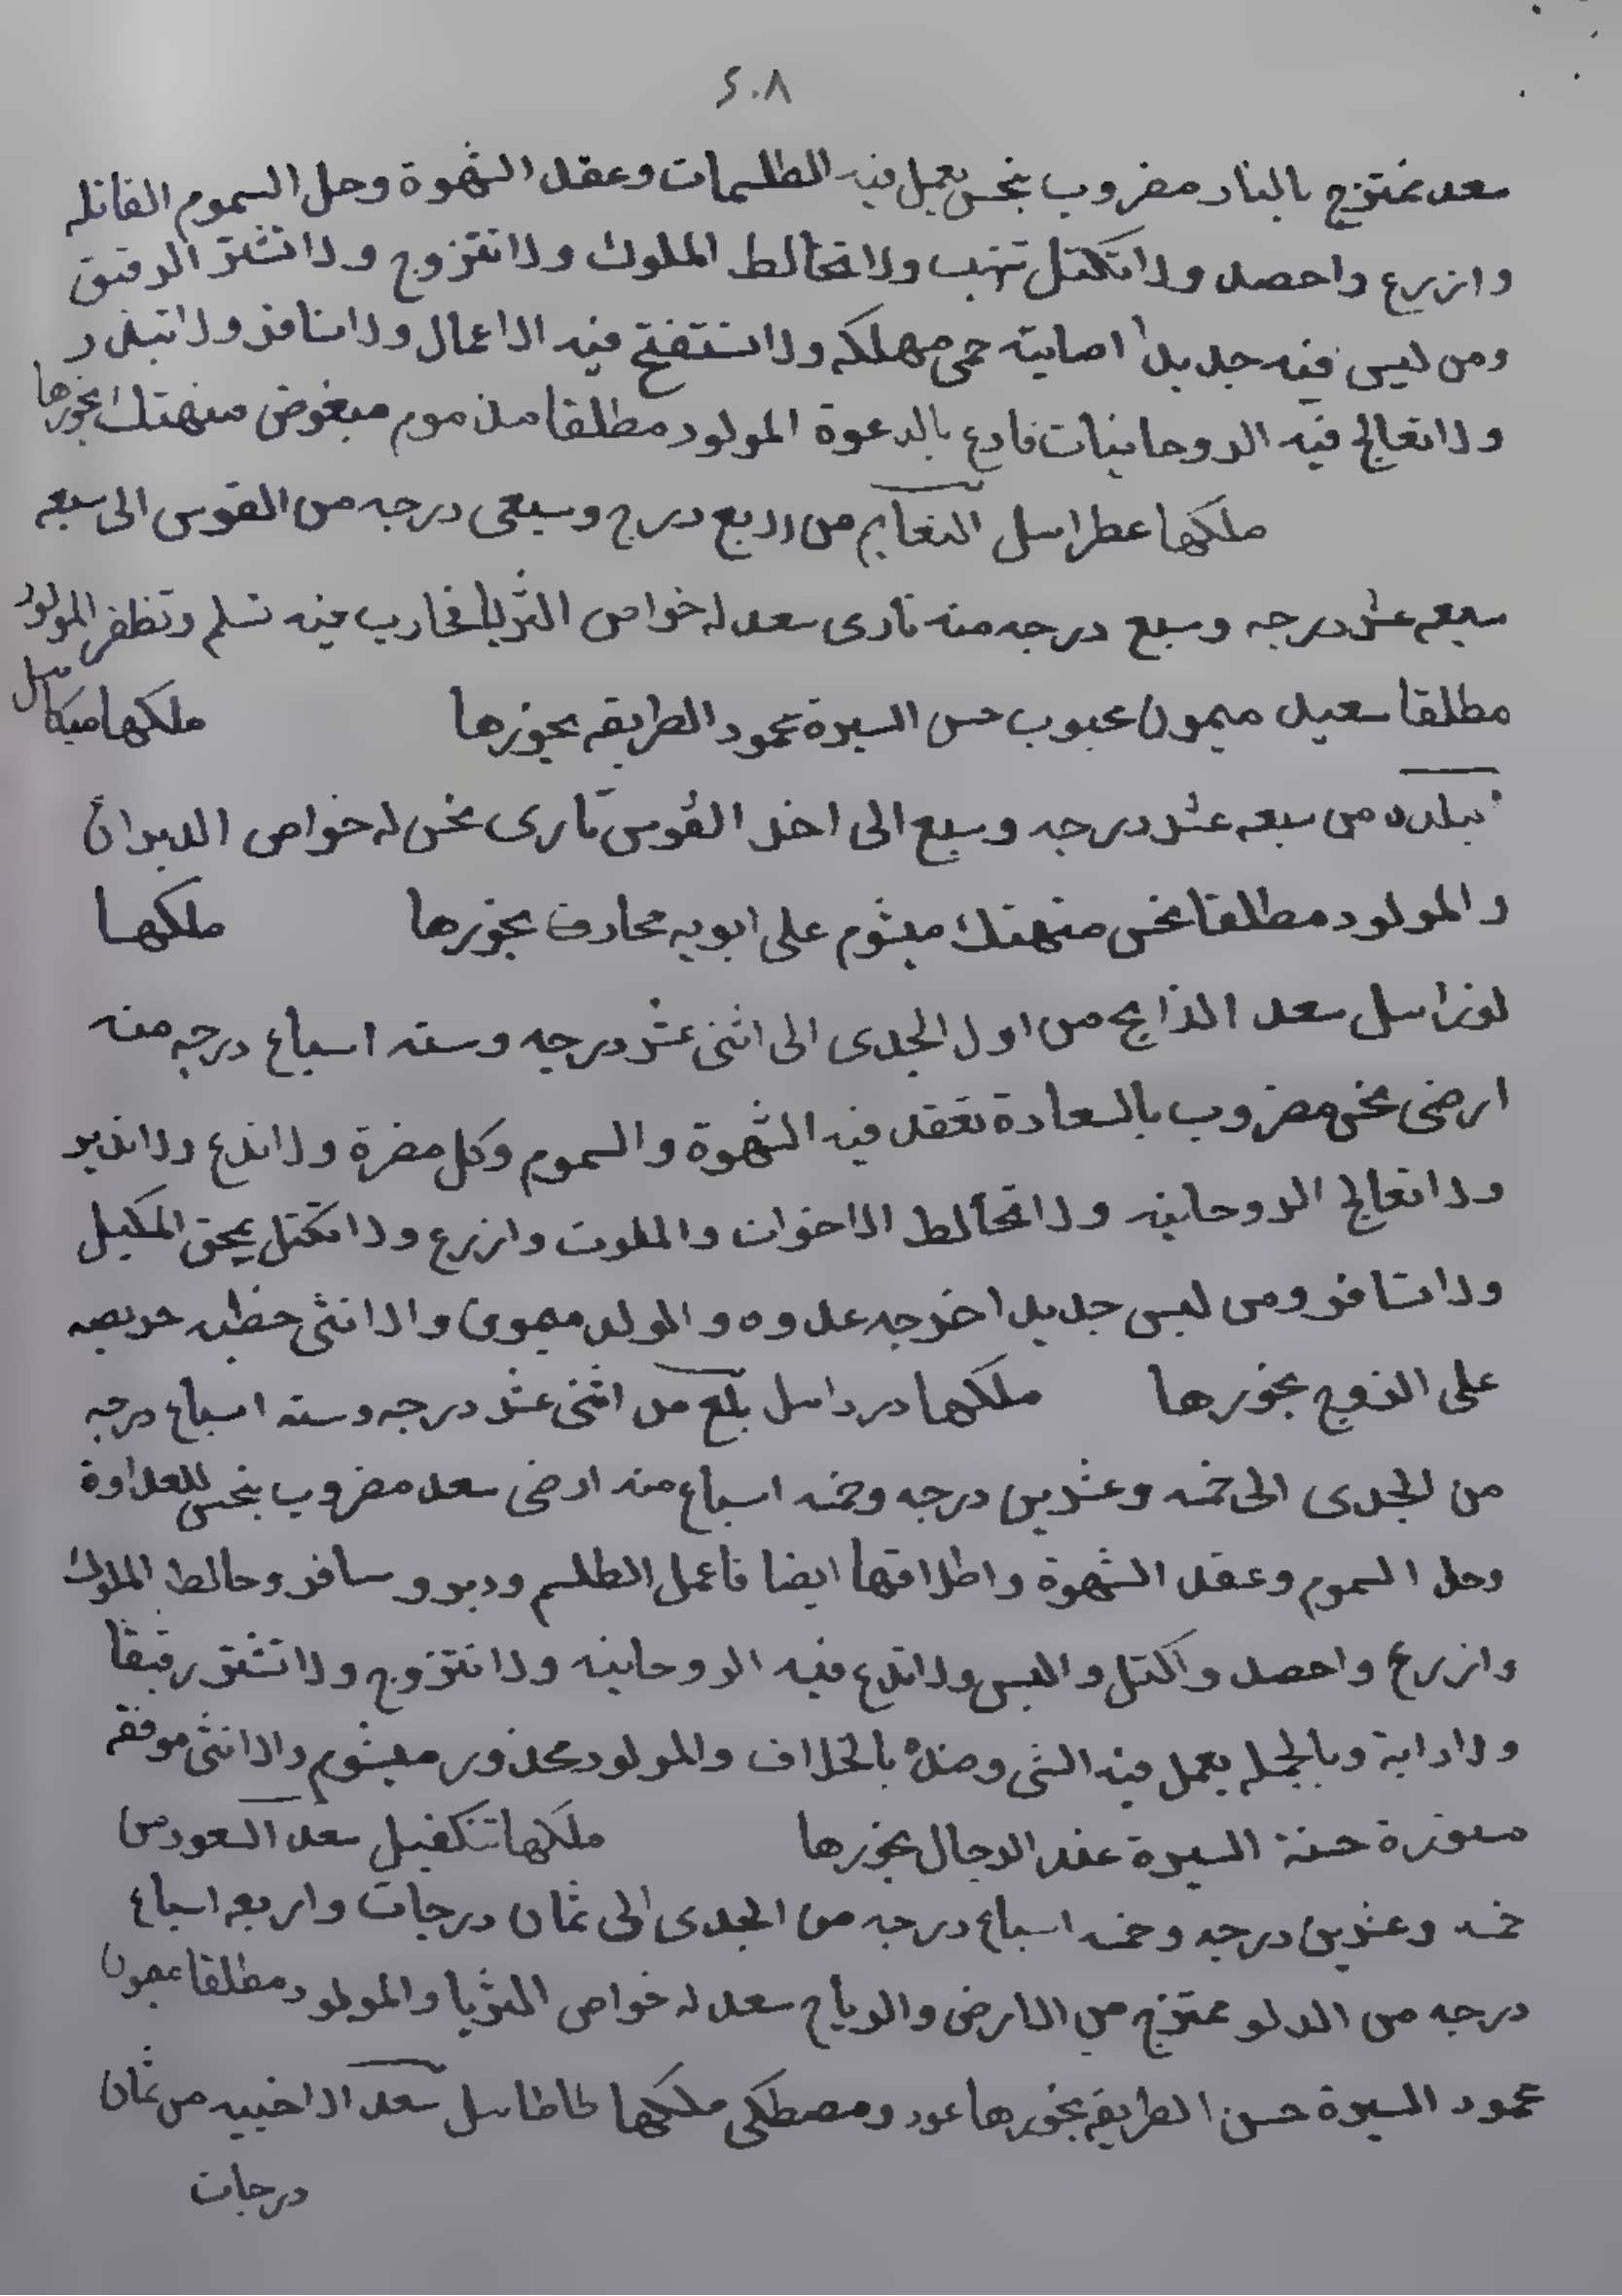 ٤٠٨
سعد ممتزج بالنار مضروب بنحس يعمل فيه الطلسمات وعقد الشهوة وحل السموم القاتله
وازرع واحصد ولا تكتل تنهب ولا تخالط الملوك ولا تتزوج ولا تشتر الرقيق
ومن لبس فيه جديدا اصابته حمى مهلكه ولا تستفتح فيه الاعمال ولا تسافر ولا تبذر
ولا تعالج فيه الروحانيات فادع بالدعوة المولود مطلقا مذموم مبغوض منهتك بخورها
ملكها عطراسل النعايم من اربع درج وسبعى درجه من القوس الى سبعه
سبعه عشر درجه وسبع درجه منه نارى سعد له خواص الثريا فحارب فيه تسلم وتظفر المولود
مطلقا سعيد ميمون محبوب حسن السيرة محمود الطريقه بخورها ملكها ميكاسل
بلده من سبعه عشر درجه وسبع الى اخر القوس نارى نحس له خواص الدبران
والمولود مطلقا نحس منهتك ميشوم على ابويه محارف بخورها ملكها
لوزاسل سعد الذابح من اول الجدى الى اثنى عشر درجه وسته اسباع درجه منه
ارضى نحس مضروب بالسعادة تعقد فيه الشهوة والسموم وكل مضرة ولا تدع ولا تدبر
ولا تعالج الروحانيه ولا تخالط الاخوان والملوك وازرع ولا تكتل يمحق المكيل
ولا تسافر ومن لبس جديد اخرجه عدوه والمولد مصون والانثى حظيه حريصه
على الزوج بخورها ملكها درداسل بلع من اثنى عشر درجه وسته اسباع درجه
من الجدى الى خمسه وعشرين درجه وخمسه اسباع منه ارضى سعد مضروب بنحس للعداوة
وحل السموم وعقد الشهوة واطلاقها ايضا فاعمل الطلسم ودبر وسافر وخالط الملوك
وازرع واحصد واكتل والبس ولا تدع فيه الروحانيه ولا تتزوج ولا تشتر رقيقا
ولا دابة وبالجمله يعمل فيه الشى وضده بالخلاف والمولود محذور ميشوم والانثى موفقه
مستورة حسنة السيرة عند الرجال بخورها ملكها تنكفيل سعد السعود من
خمسه وعشرين درجه وخمسه اسباع درجه من الجدى الى ثمان درجات واربعه اسباع
درجه من الدلو ممتزج من الارض والرياح سعد له خواص الثريا والمولود مطلقا
محمود السيرة حسن الطريقه بخورها عود ومصطكى ملكها طاطاسل سعد الاخبيه من ثمان
درجات